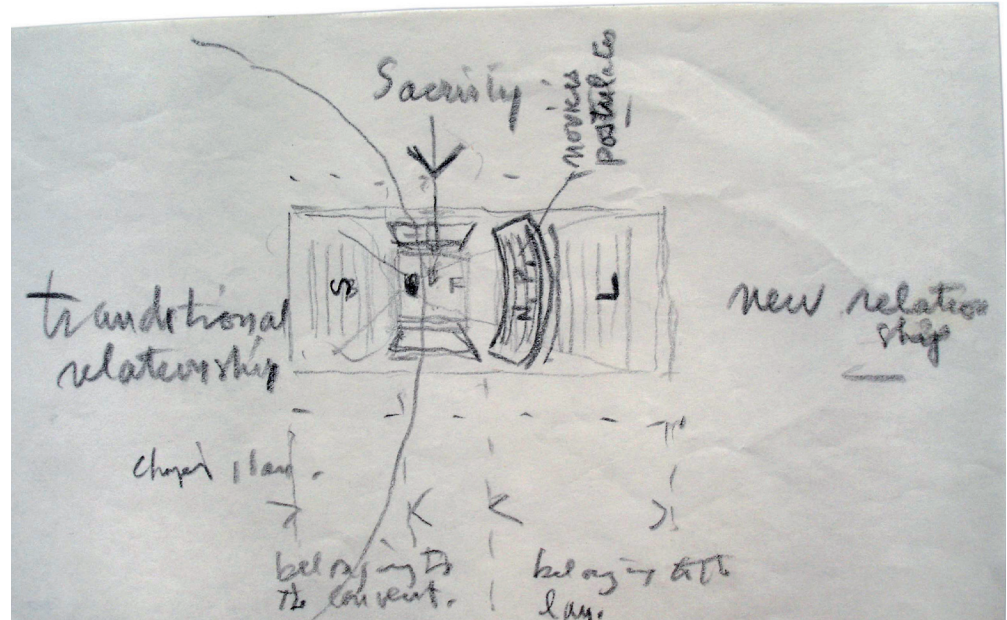 Sacristy
novices
postulates
S
F
N.P.
L
tranditional
relationship
new relation
ship
chapel plan.
belonging to
the convent.
belonging to the
lay.